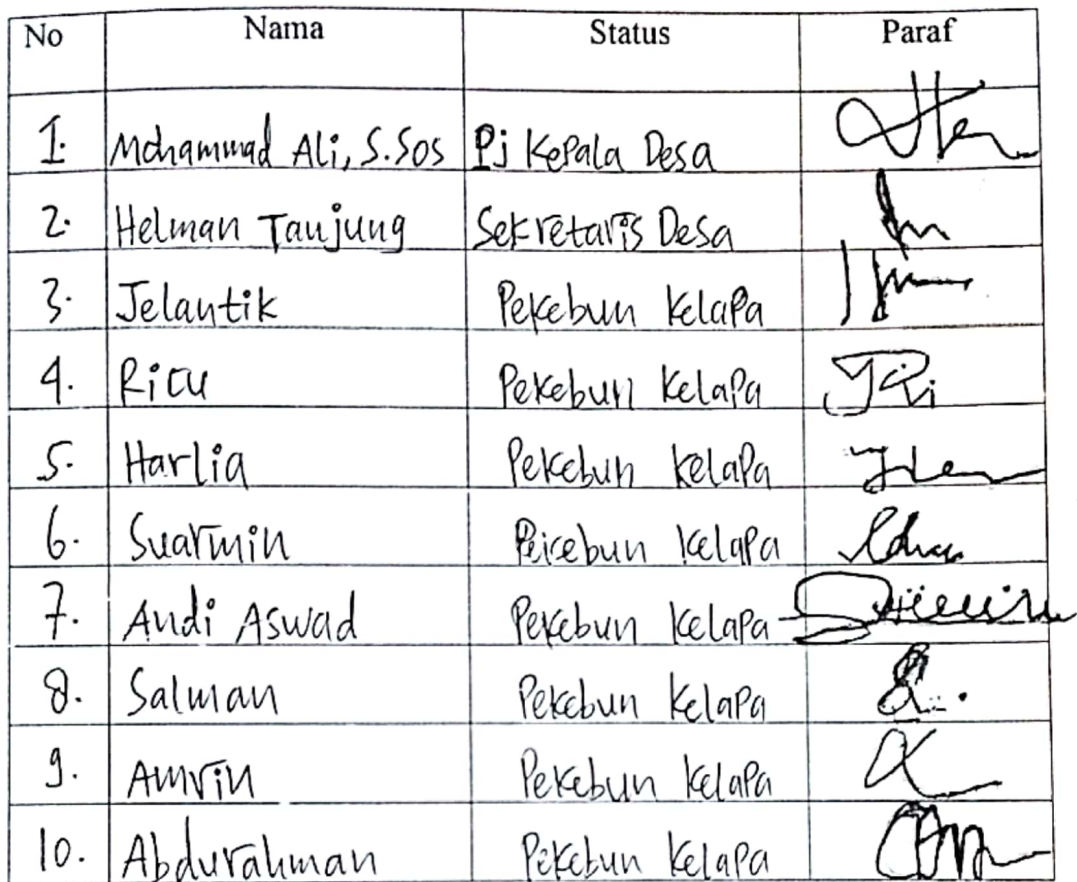 No Nama Status Paraf
1. Mohammad Ali, S.Sos Pj Kepala Desa
2. Helman Tanjung Sekretaris Desa
3. Jelantik Pekebun Kelapa
4. Ricu Pekebun Kelapa
5. Harlia Pekebun Kelapa
6. Suarmin Pekebun Kelapa
7. Andi Aswad Pekebun Kelapa
8. Salman Pekebun Kelapa
9. Amrin Pekebun Kelapa
10. Abdurahman Pekebun Kelapa